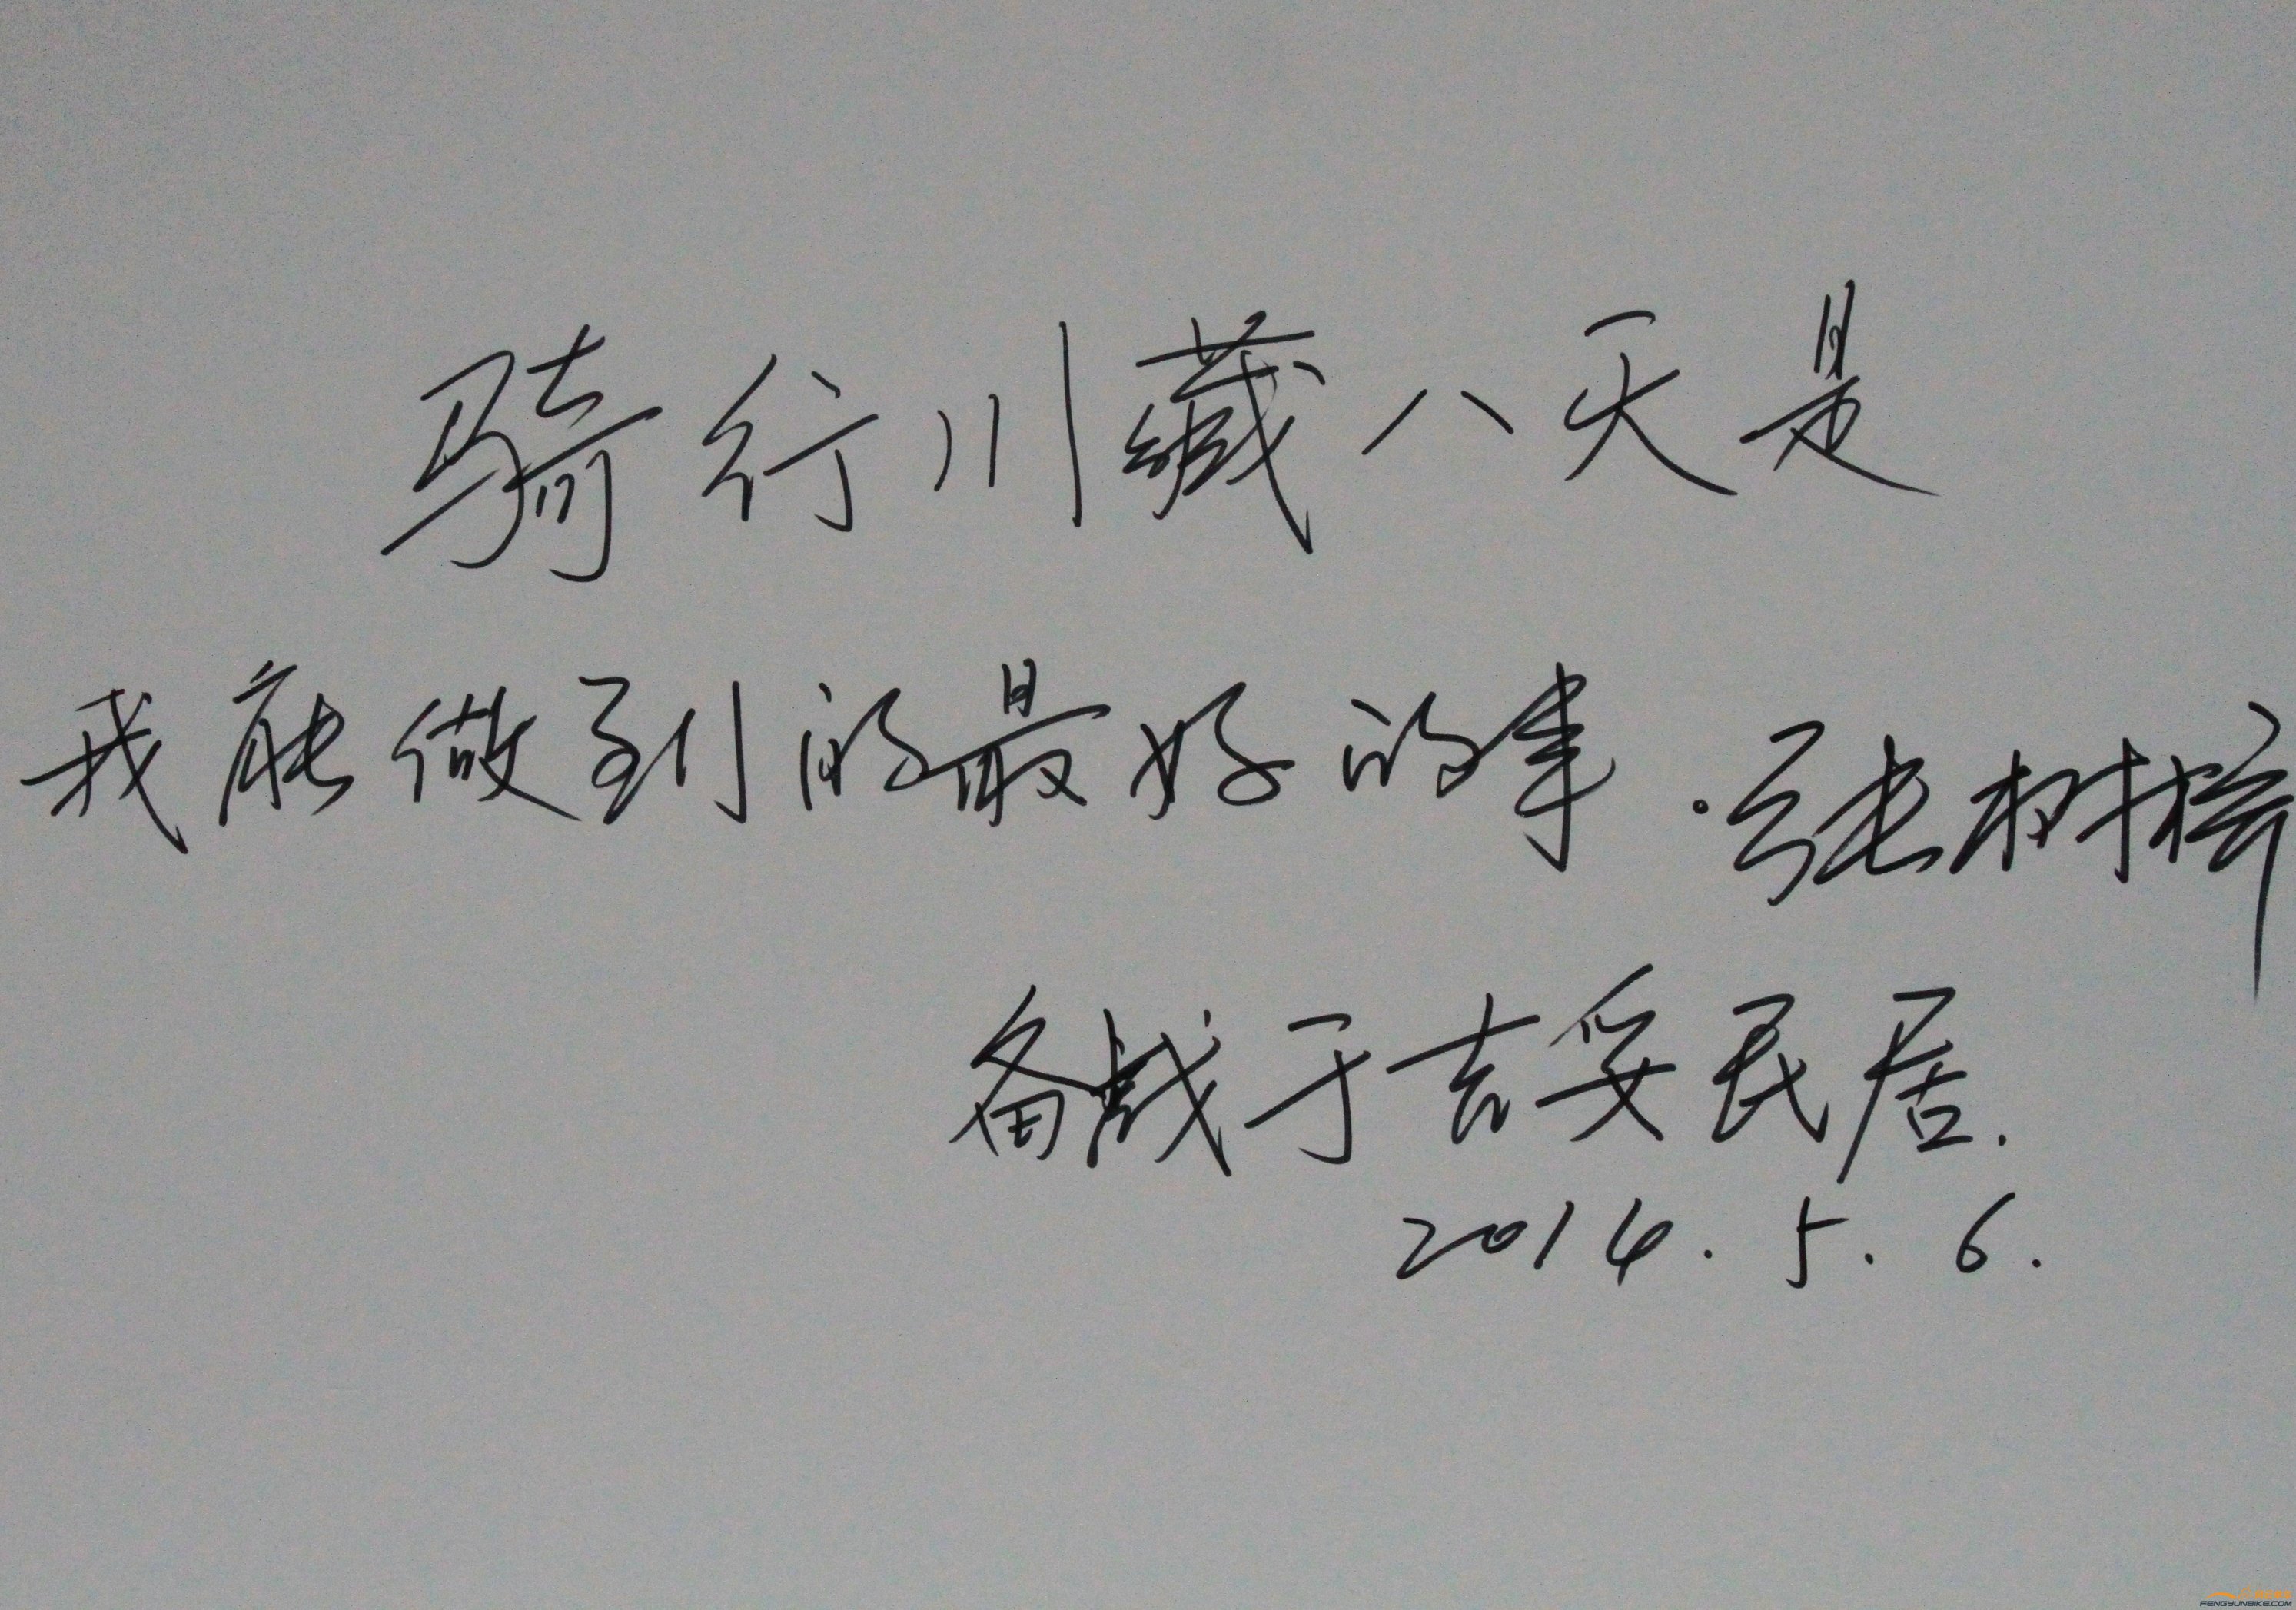 骑行川藏八天是
我能做到的最好的事.张树梓
备战于吉妥民居.
2014.5.6.
FENGYUNBIKE.COM